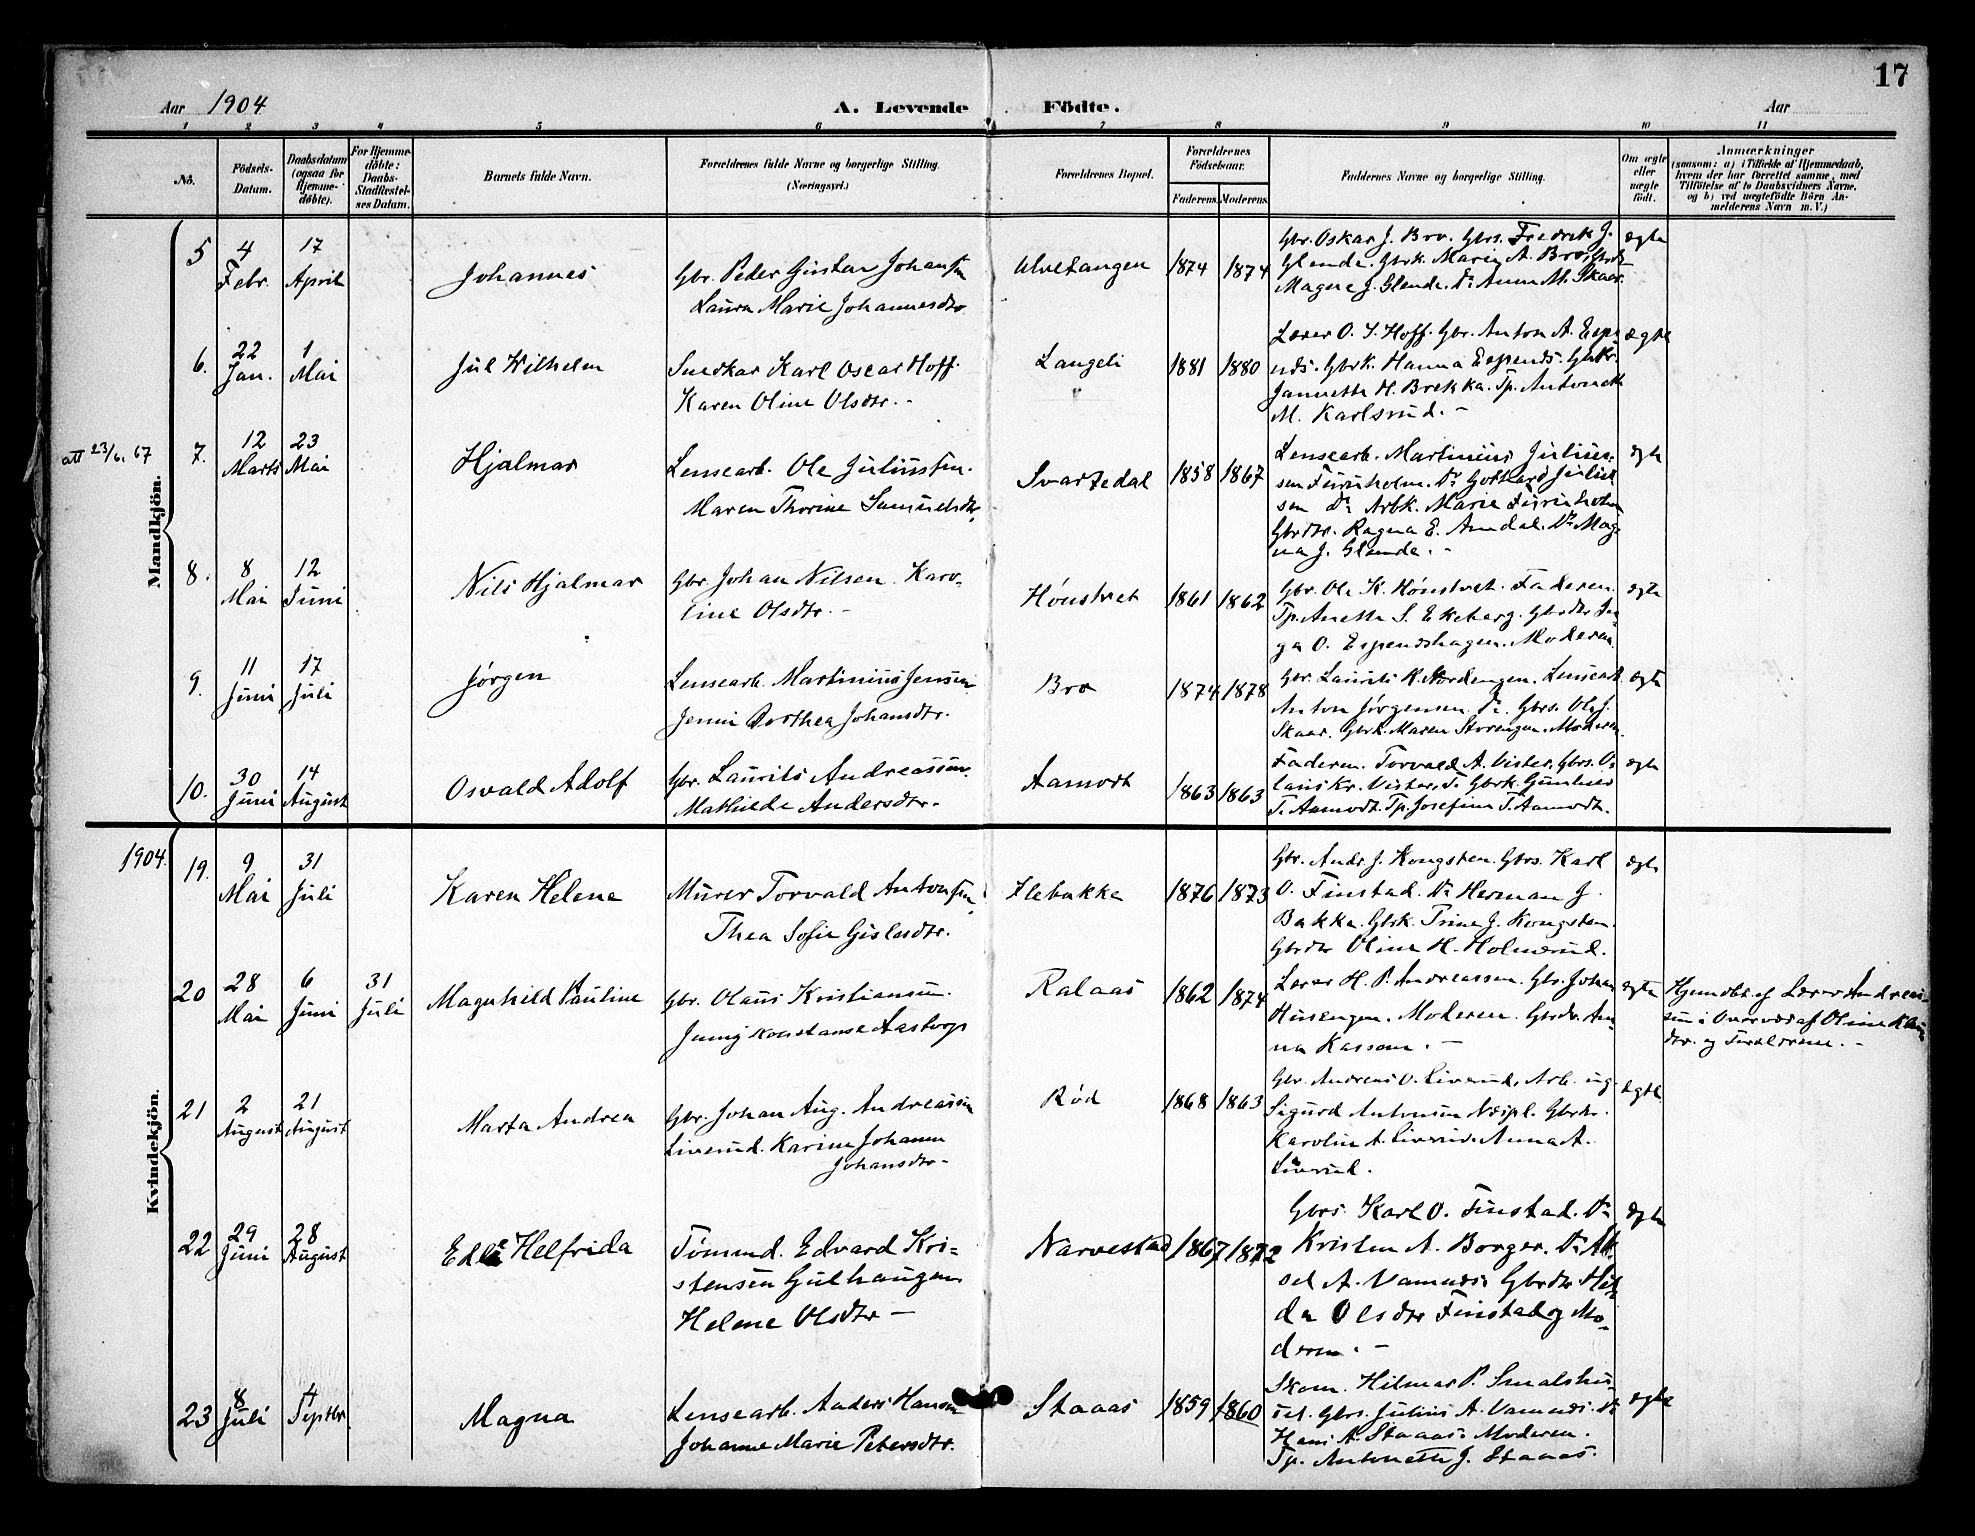 17
Aar 1904 A. Levende Födte. Aar
1 2 3 4 5 6 7 8 9 10 11
No. Födsels-Datum. Daabsdatum (ogsaa for Hjemme-döbte). For Hjemme-döbte: Daabs-Stadfæstel-ses Datum. Barnets fulde Navn. Forældrenes fulde Navne og borgerlige Stilling. (Næringsvei.) Forældrenes Bopæl. Forældrenes Födselsaar. Faderens. Moderens. Faddernes Navne og borgerlige Stilling. Om ægte eller uægte födt. Anmærkninger (saasom: a) i Tilfælde af Hjemmedaab, hvem der har forrettet samme, med Tilföielse af to Daabsvidners Navne, og b) ved uægtefödte Börn An-melderens Navn m. V.)
Mandkjön.
5 4 Febr. 17 April Johannes
Gbr. Peder Gustav Johansen
Laura Marie Johannesdtr.
Ulvetangen 1874 1874
Gbr. Oskar J. Bro. Gbrs. Fredrik J.
Glende. Gbrk. Maren A. Bro. Gbrdtr
Magne J. Glende. Do Anne M. Skaar.
ægte
6. 22 Jan. 1 Mai Jul Wilhelm
Snedkar Karl Oscar Hoff.
Karen Oline Olsdtr. -
Langeli 1881 1880
Lærer O. J. Hoff. Gbr. Anton A. Espe-
nds. Gbrk. Hanna Espends. Gbrk.
Jannette H. Brekka. Tp. Antonette
M. Karlsrud. -
ægte
att 23/6. 67
7. 12 Marts 23 Mai Hjalmar
Lensearb. Ole Juliussen.
Maren Thorine Samuelsdtr.
Svartedal 1858 1867
Lensearb. Martinius Julius-
sen Furuholm. Do Gothard Julius
sen Do Arbk. Marie Furuholm
Gbrdtr. Ragna E. Amdal. Do Mag-
na J. Glende. -
ægte
8. 8 Mai 12 Juni Nils Hjalmar
Gbr. Johan Nilsen. Karo-
line Olsdtr. -
Hönstvet 1861 1862
Gbr. Ole K. Hönstvet. Faderen.
Tp. Anette S. Ekeberg. Gbrdtr In-
ga O. Espendshagen. Moderen.
ægte
9. 11 Juni 17 Juli Jørgen
Lensearb. Martinius Jensen
Jenni Dorthea Johansdtr.
Bro 1874 1878
Gbr. Laurits K. Nordengen. Lensearb
Anton Jörgensen Do. Gbrs. Ole J.
Skaar. Gbrk. Maren Storengen. Moderen.
ægte
10. 30 Juni 14 August Osvald Adolf
Gbr. Laurits Andreassen.
Mathilde Andersdtr. -
Aamodt 1863 1863
Faderen. Torvald A. Vister. Gbrs. O-
laus Kr. Vister. T. Gbrk. Gunhild
T. Aamodt. Tp. Josefine T. Aamodt.
ægte
Kvindekjön.
1904.
19. 9 Mai 31 Juli Karen Helene
Murer Torvald Antonsen
Thea Sofie Gislesdtr.
Flebakka 1876 1873
Gbr. Andr. J. Kongsten. Gbrs. Karl
O. Finstad. Do Herman J.
Bakka. Gbrk. Trine J. Kongsten.
Gbrdtr Oline H. Holmerud.
ægte
20 28 Mai 6 Juni 31 Juli Magnhild Pauline
Gbr. Olaus Kristiansen.
Jenny Konstanse Aastorp
Ralaas 1862 1874
Lærer H. P. Andreassen. Gbs. Johan
Husengen. Moderen. Gbrdtr. An-
na Kassem. -
ægte
Hjemdbt. af Lærer Andreas-
sen i Overvær af Oline
dtr. og Forældrene. -
21 2 August 21 August Marta Andrea
Gbr. Johan Aug. Andreassen
Liverud. Karine Johanne
Johansdtr -
Röd 1868 1863
Gbr. Andreas O. Liverud. Arb. ug.
Sigurd Antonsen Næspl. Gbrdtr.
Karoline A. Liverud. Anna A.
Liverud.
ægte
22 29 Juni 28 August Edle Helfrida
Tömmd. Edvard Kri-
stensen Gulhaugen
Helene Olsdtr -
Narvestad 1867 1872
Gbrs. Karl O. Finstad. Do
Kristen A. Borger. Do Ak-
sel A. Vamnes. Gbrdtr Hil-
da Olsdtr Finstad og Mo-
deren. -
ægte
23 8 Juli 4 Septbr. Magna
Lensearb. Anders Hansen
Johanne Marie Petersdtr.
Staaas 1859 1860
Skom. Hilmar P. Smalshu-
set. Gbrs. Julius A. Vamnes. Do
Hans A. Staaas. Moderen.
Tp. Antonette J. Staaas.
ægte